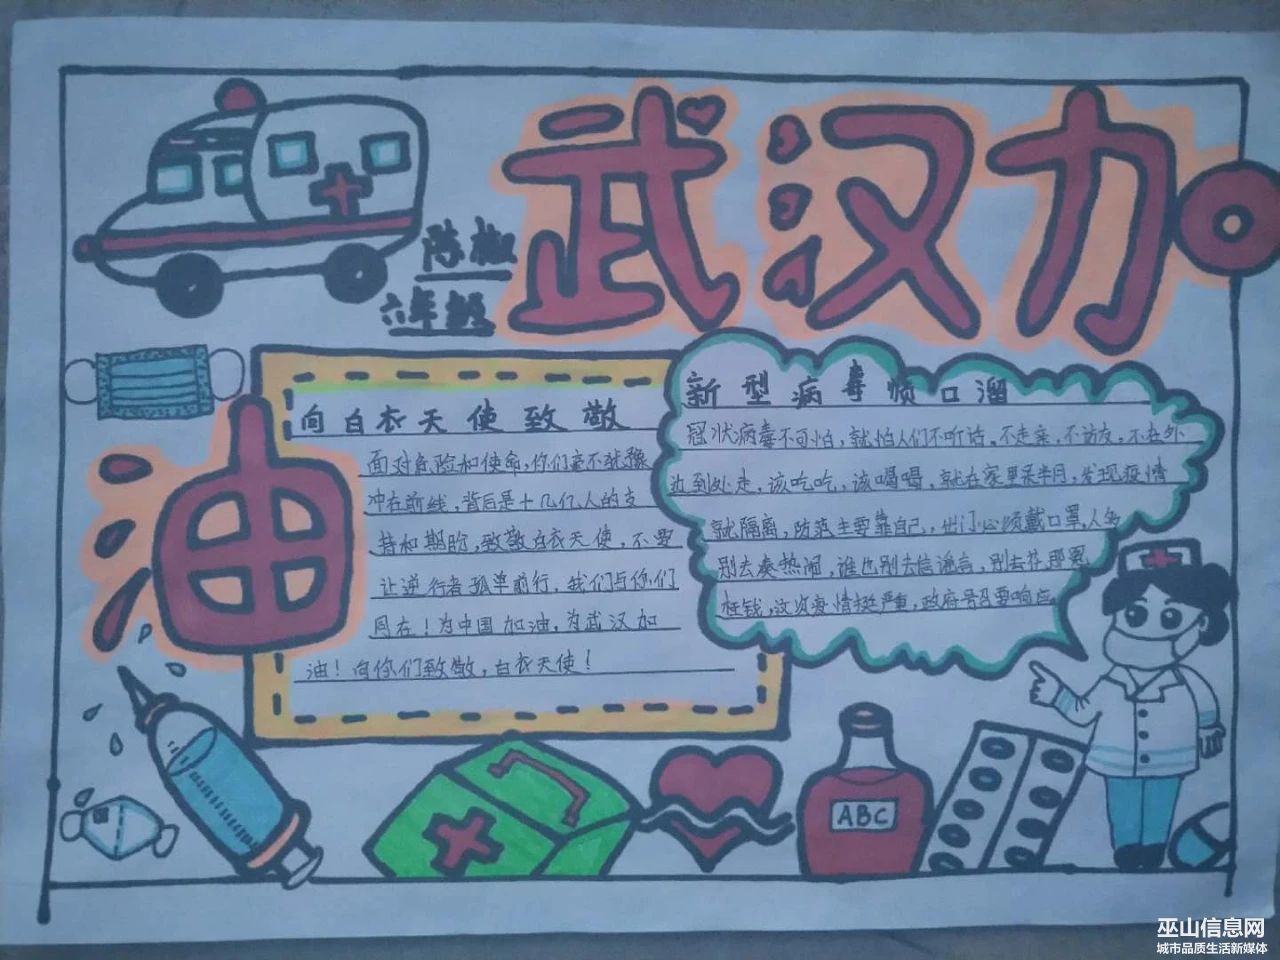 武汉加
油
陈椒
六年级
向白衣天使致敬
面对危险和使命,你们毫不犹豫
冲在前线,背后是十几亿人的支
持和期盼,致敬白衣天使,不要
让逆行者孤单前行,我们与你们
同在!为中国加油,为武汉加
油!向你们致敬,白衣天使!
新型病毒顺口溜
冠状病毒不可怕,就怕人们不听话。不走亲,不访友,不在外
边到处走,该吃吃,该喝喝,就在家里呆半月,发现疫情
就隔离,防范主要靠自己,出门必须戴口罩,人多
别去凑热闹,谁也别去信谣言,别去花那冤
枉钱,这次疫情挺严重,政府号召要响应
ABC
巫山信息网
城市品质生活新媒体